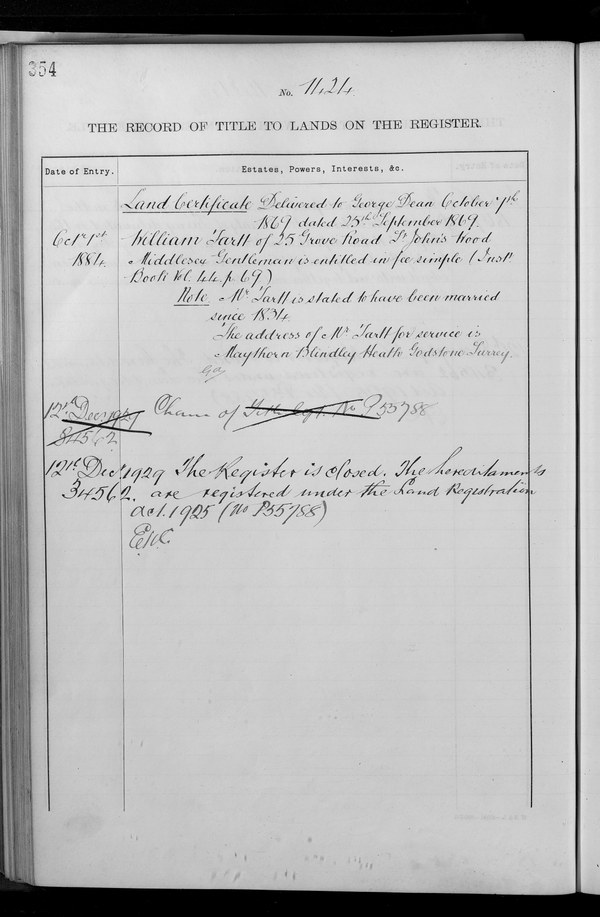 354
No. 1424
THE RECORD OF TITLE TO LANDS ON THE REGISTER.
Date of Entry.
Estates, Powers, Interests, &c.
Land Certificate Delivered to George Dean October 7th
1869 dated 25th September 1869.
Octr 1st
1884.
William Tartt of 25 Grove Road St. John's Wood
Middlesex Gentleman is entitled in fee simple (Instt
Book Vol. 44. p. 69)
Note Mr. Tartt is stated to have been married
since 1834.
The address of Mr. Tartt for service is
Maythorn Blindley Heath Godstone Surrey.
12th Decr 1929
34562
of Title No. P55788
12th Decr 1929 The Register is closed. The hereditaments
34562. are registered under the Land Registration
Act. 1925 (No P55788)